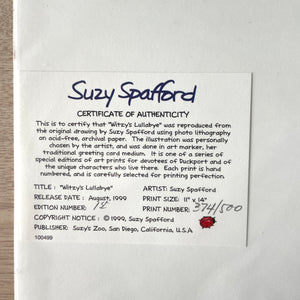 Suzy Spafford
CERTIFICATE OF AUTHENTICITY
This is to certify that "Witzy's Lullabye" was reproduced from
the original drawing by Suzy Spafford using photo lithography
on acid-free, archival paper. The illustration was personally
chosen by the artist, and was done in art marker, her
traditional greeting card medium. It is one of a series of
special editions of art prints for devotees of Duckport and of
the unique characters who live there. Each print is hand
numbered, and is carefully selected for printing perfection.
TITLE: "Witzy's Lullabye" ARTIST: Suzy Spafford
RELEASE DATE: August, 1999 PRINT SIZE: 11" x 14"
EDITION NUMBER: 1st PRINT NUMBER: 374/500
COPYRIGHT NOTICE: © 1999, Suzy Spafford
PUBLISHER: Suzy's Zoo, San Diego, California, U.S.A.
100499